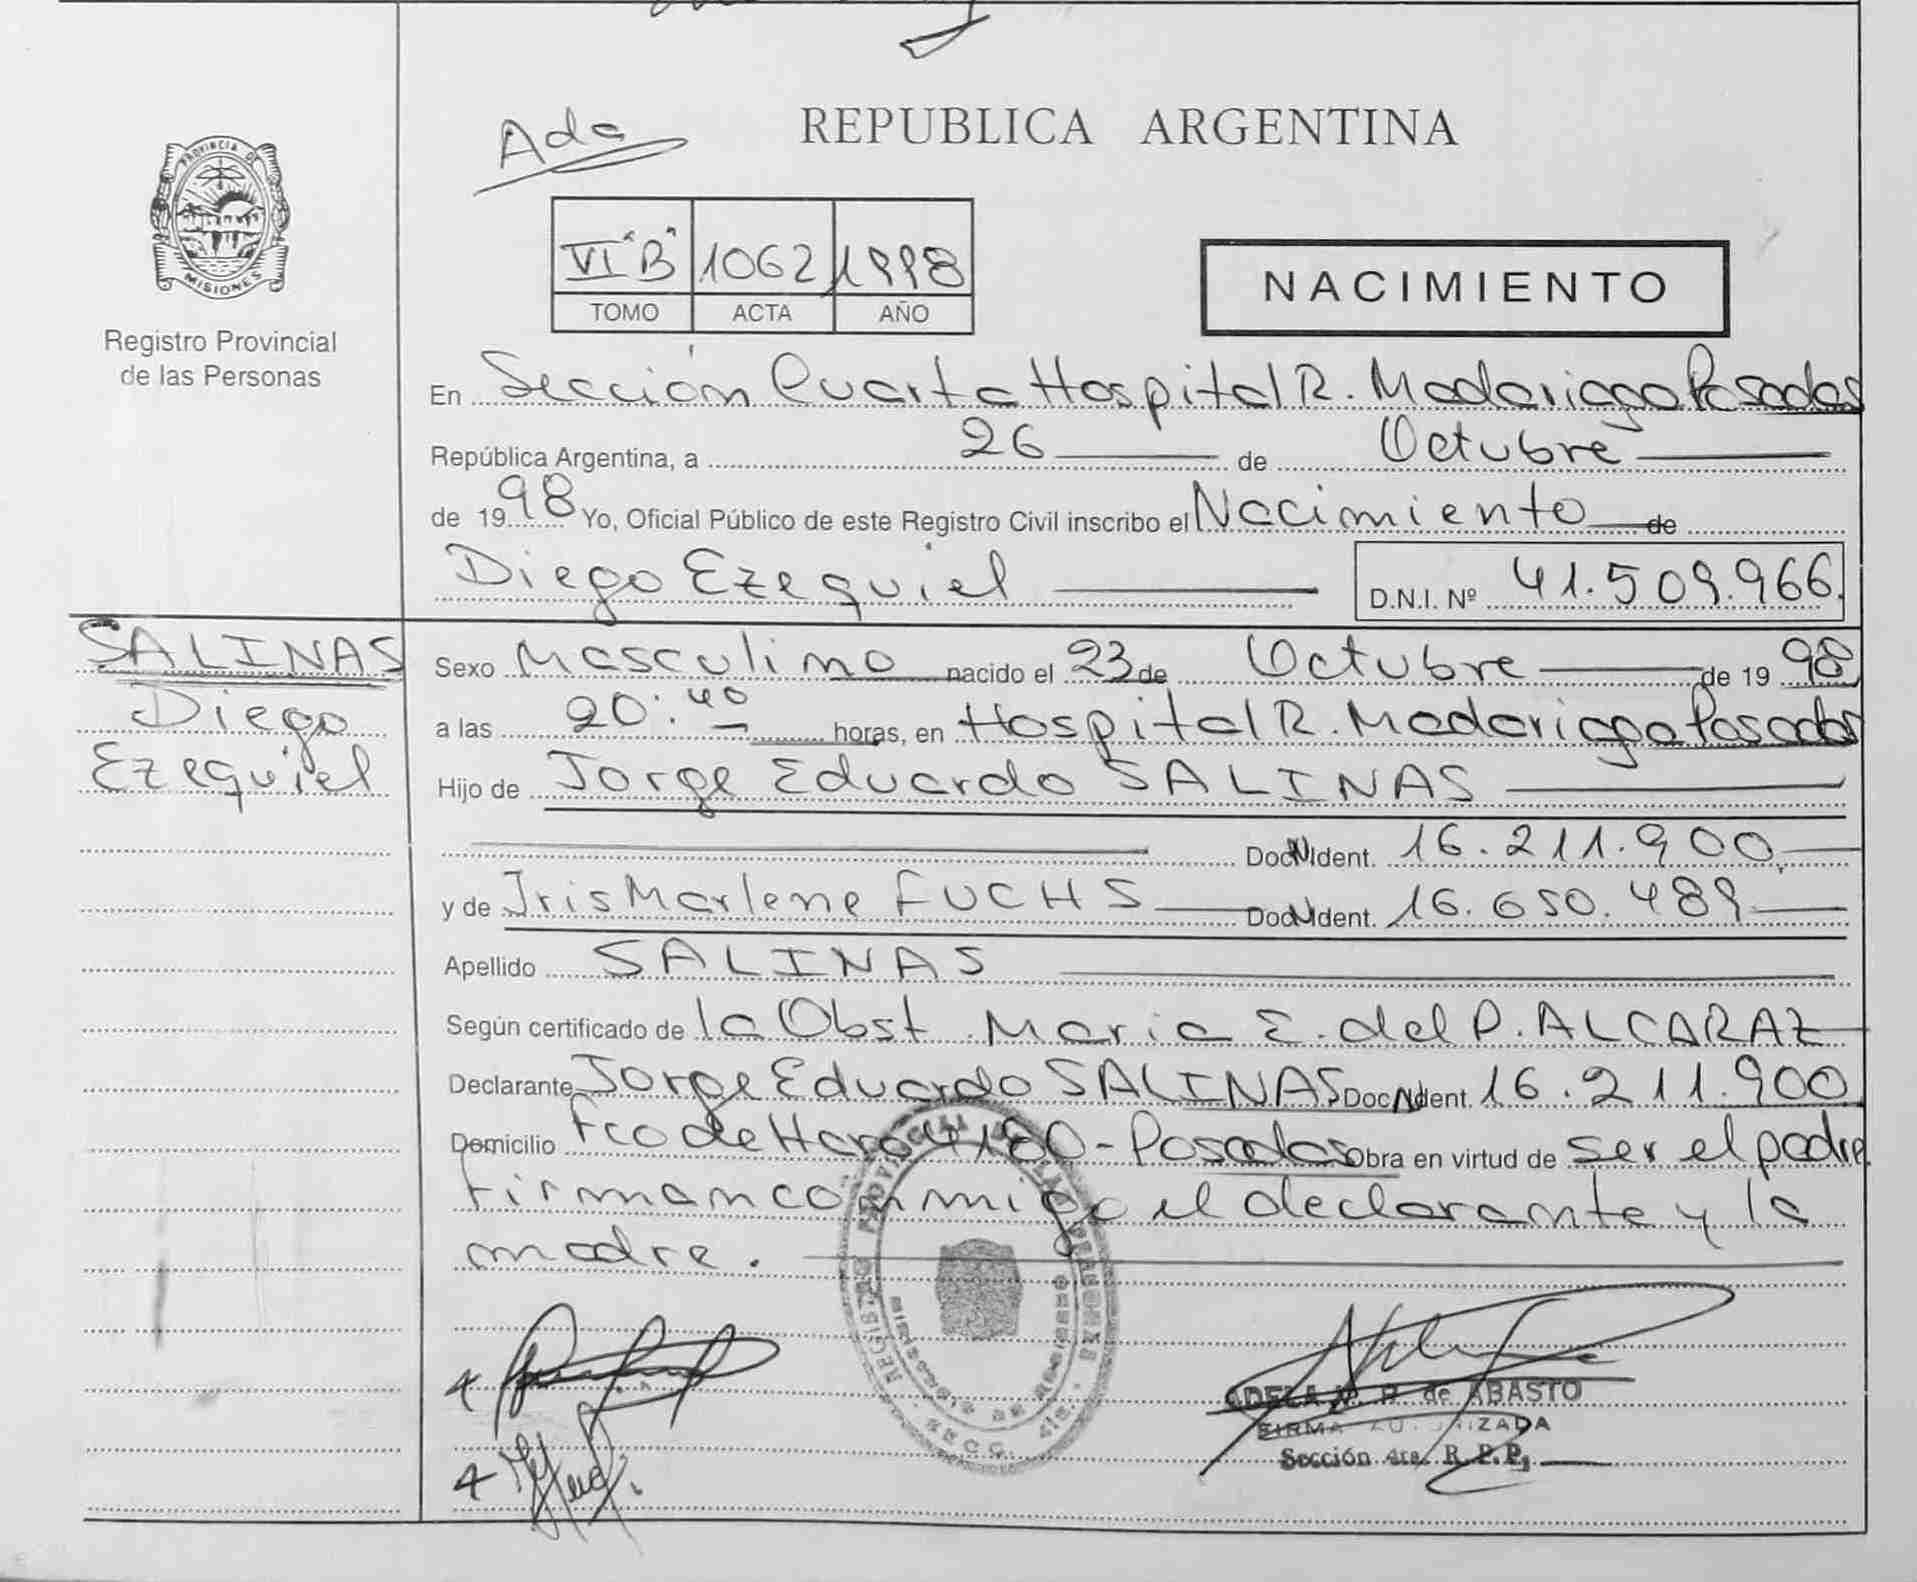 Ada
REPUBLICA ARGENTINA
PROVINCIA DE
MISIONES
Registro Provincial
de las Personas
VI "B" 1062 1998
TOMO ACTA AÑO
NACIMIENTO
En Sección Cuarta Hospital R. Madariaga Posadas
República Argentina, a 26 de Octubre
de 1998 Yo, Oficial Público de este Registro Civil inscribo el Nacimiento de
Diego Ezequiel D.N.I. Nº 41.509.966
SALINAS
Diego
Ezequiel
Sexo Masculino nacido el 23 de Octubre de 1998
a las 20:40 horas, en Hospital R. Madariaga Posadas
Hijo de Jorge Eduardo SALINAS
Doc N Ident. 16.211.900
y de Iris Marlene FUCHS Doc N Ident. 16.650.489
Apellido SALINAS
Según certificado de la Obst. Maria E. del P. ALCARAZ
Declarante Jorge Eduardo SALINAS Doc N Ident. 16.211.900
Domicilio Fco de Haro 4180 - Posadas Obra en virtud de ser el padre
firman conmigo el declarante y la
madre.
ADELA de ABASTO
FIRMA AUTORIZADA
Sección 4ta. R.P.P.